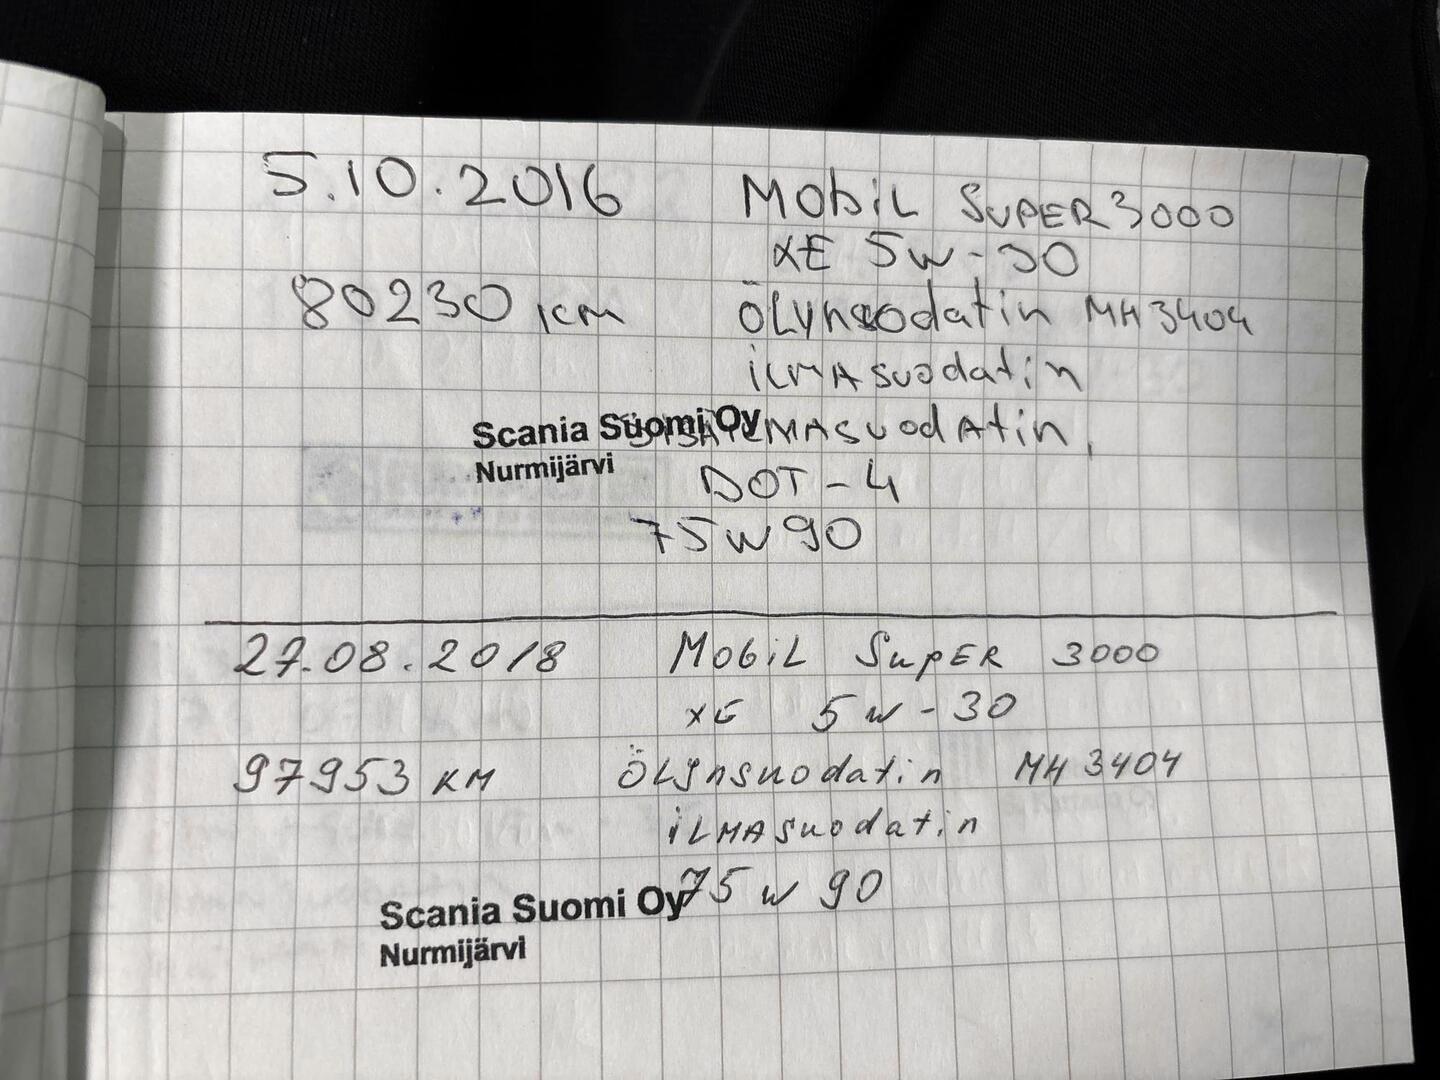 5.10.2016 MObiL SUPER 3000
XE 5W-30
80230 km ÖLynsuodatin MH3404
iLMAsuodatin
Scania Suomi Oy SISÄILMASUOdAtin,
Nurmijärvi
DOT-4
75W90
27.08.2018 MobiL SupER 3000
XE 5W-30
97953 KM ÖLjnsuodatin MH3404
iLMAsuodatin
75W90
Scania Suomi Oy
Nurmijärvi